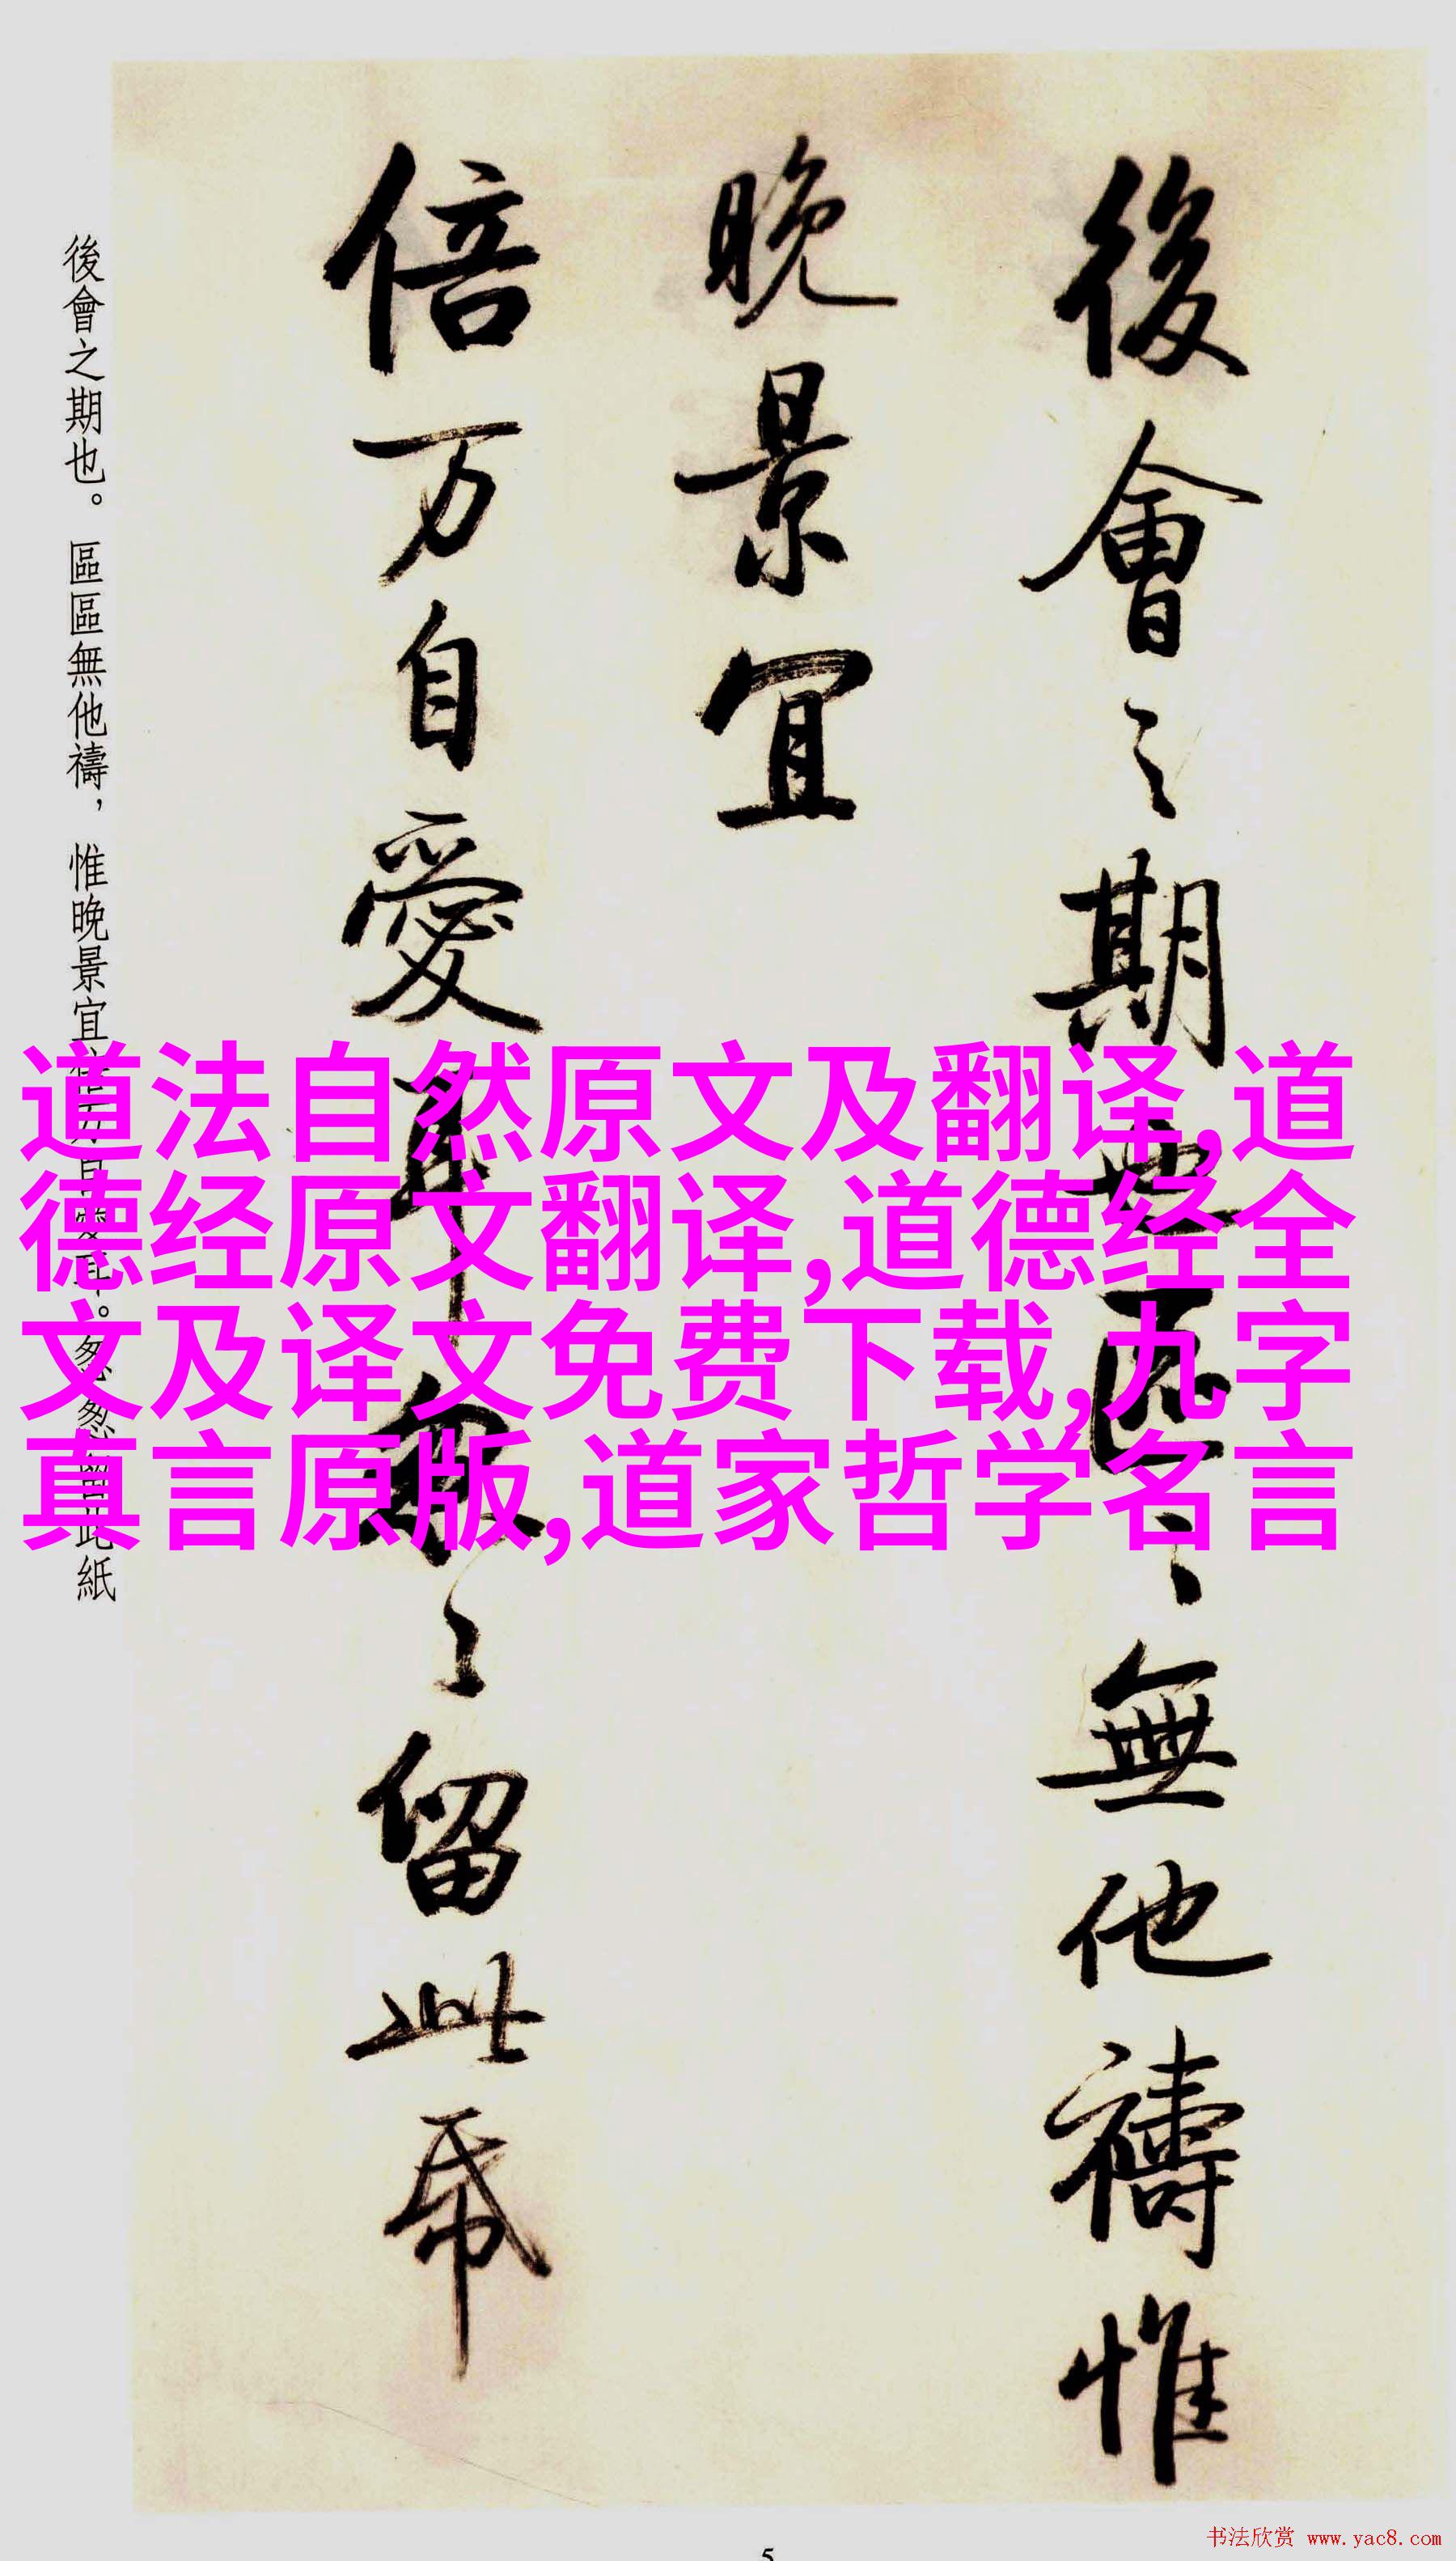 後會之期無區〻無他禱惟
晚景宜
倍万自愛耳匆〻留此帋
後會之期也。區區無他禱，惟晚景宜倍万自愛耳。怱怱留此紙
道法自然原文及翻译,道
德经原文翻译,道德经全
文及译文免费下载,九字
真言原版,道家哲学名言
5
书法欣赏 www.yac8.com